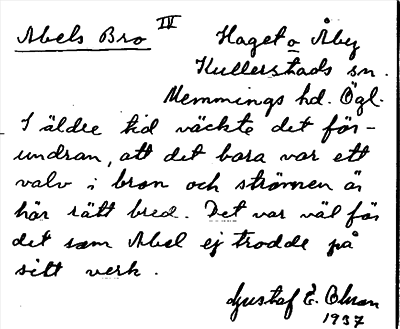 Abels Bro IV Haget o Åby
Kullerstads sn.
Memmings hd. Ögl.
I äldre tid väckte det för-
undran, att det bara var ett
valv i bron och strömmen är
här rätt bred. Det var väl för
det som Abel ej trodde på
sitt verk.
Gustaf E.
1937